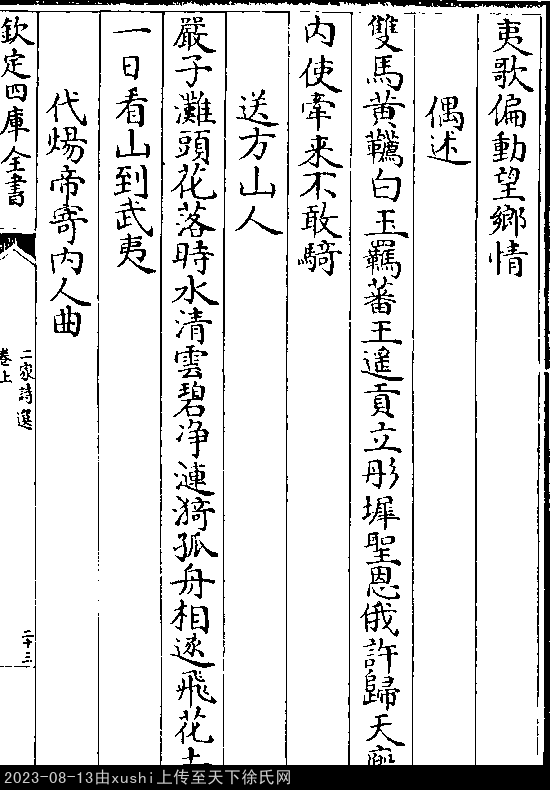 夷歌偏動望鄉情
偶述
雙馬黃韉白玉羈蕃王遥貢立彤墀聖恩俄許歸天廐
内使牽来不敢騎
送方山人
嚴子灘頭花落時水清雲碧净漣漪孤舟相逐飛花去
一日看山到武夷
代煬帝寄内人曲
欽定四庫全書
二家詩選
卷上
二十三
2023-08-13由xushi上传至天下徐氏网